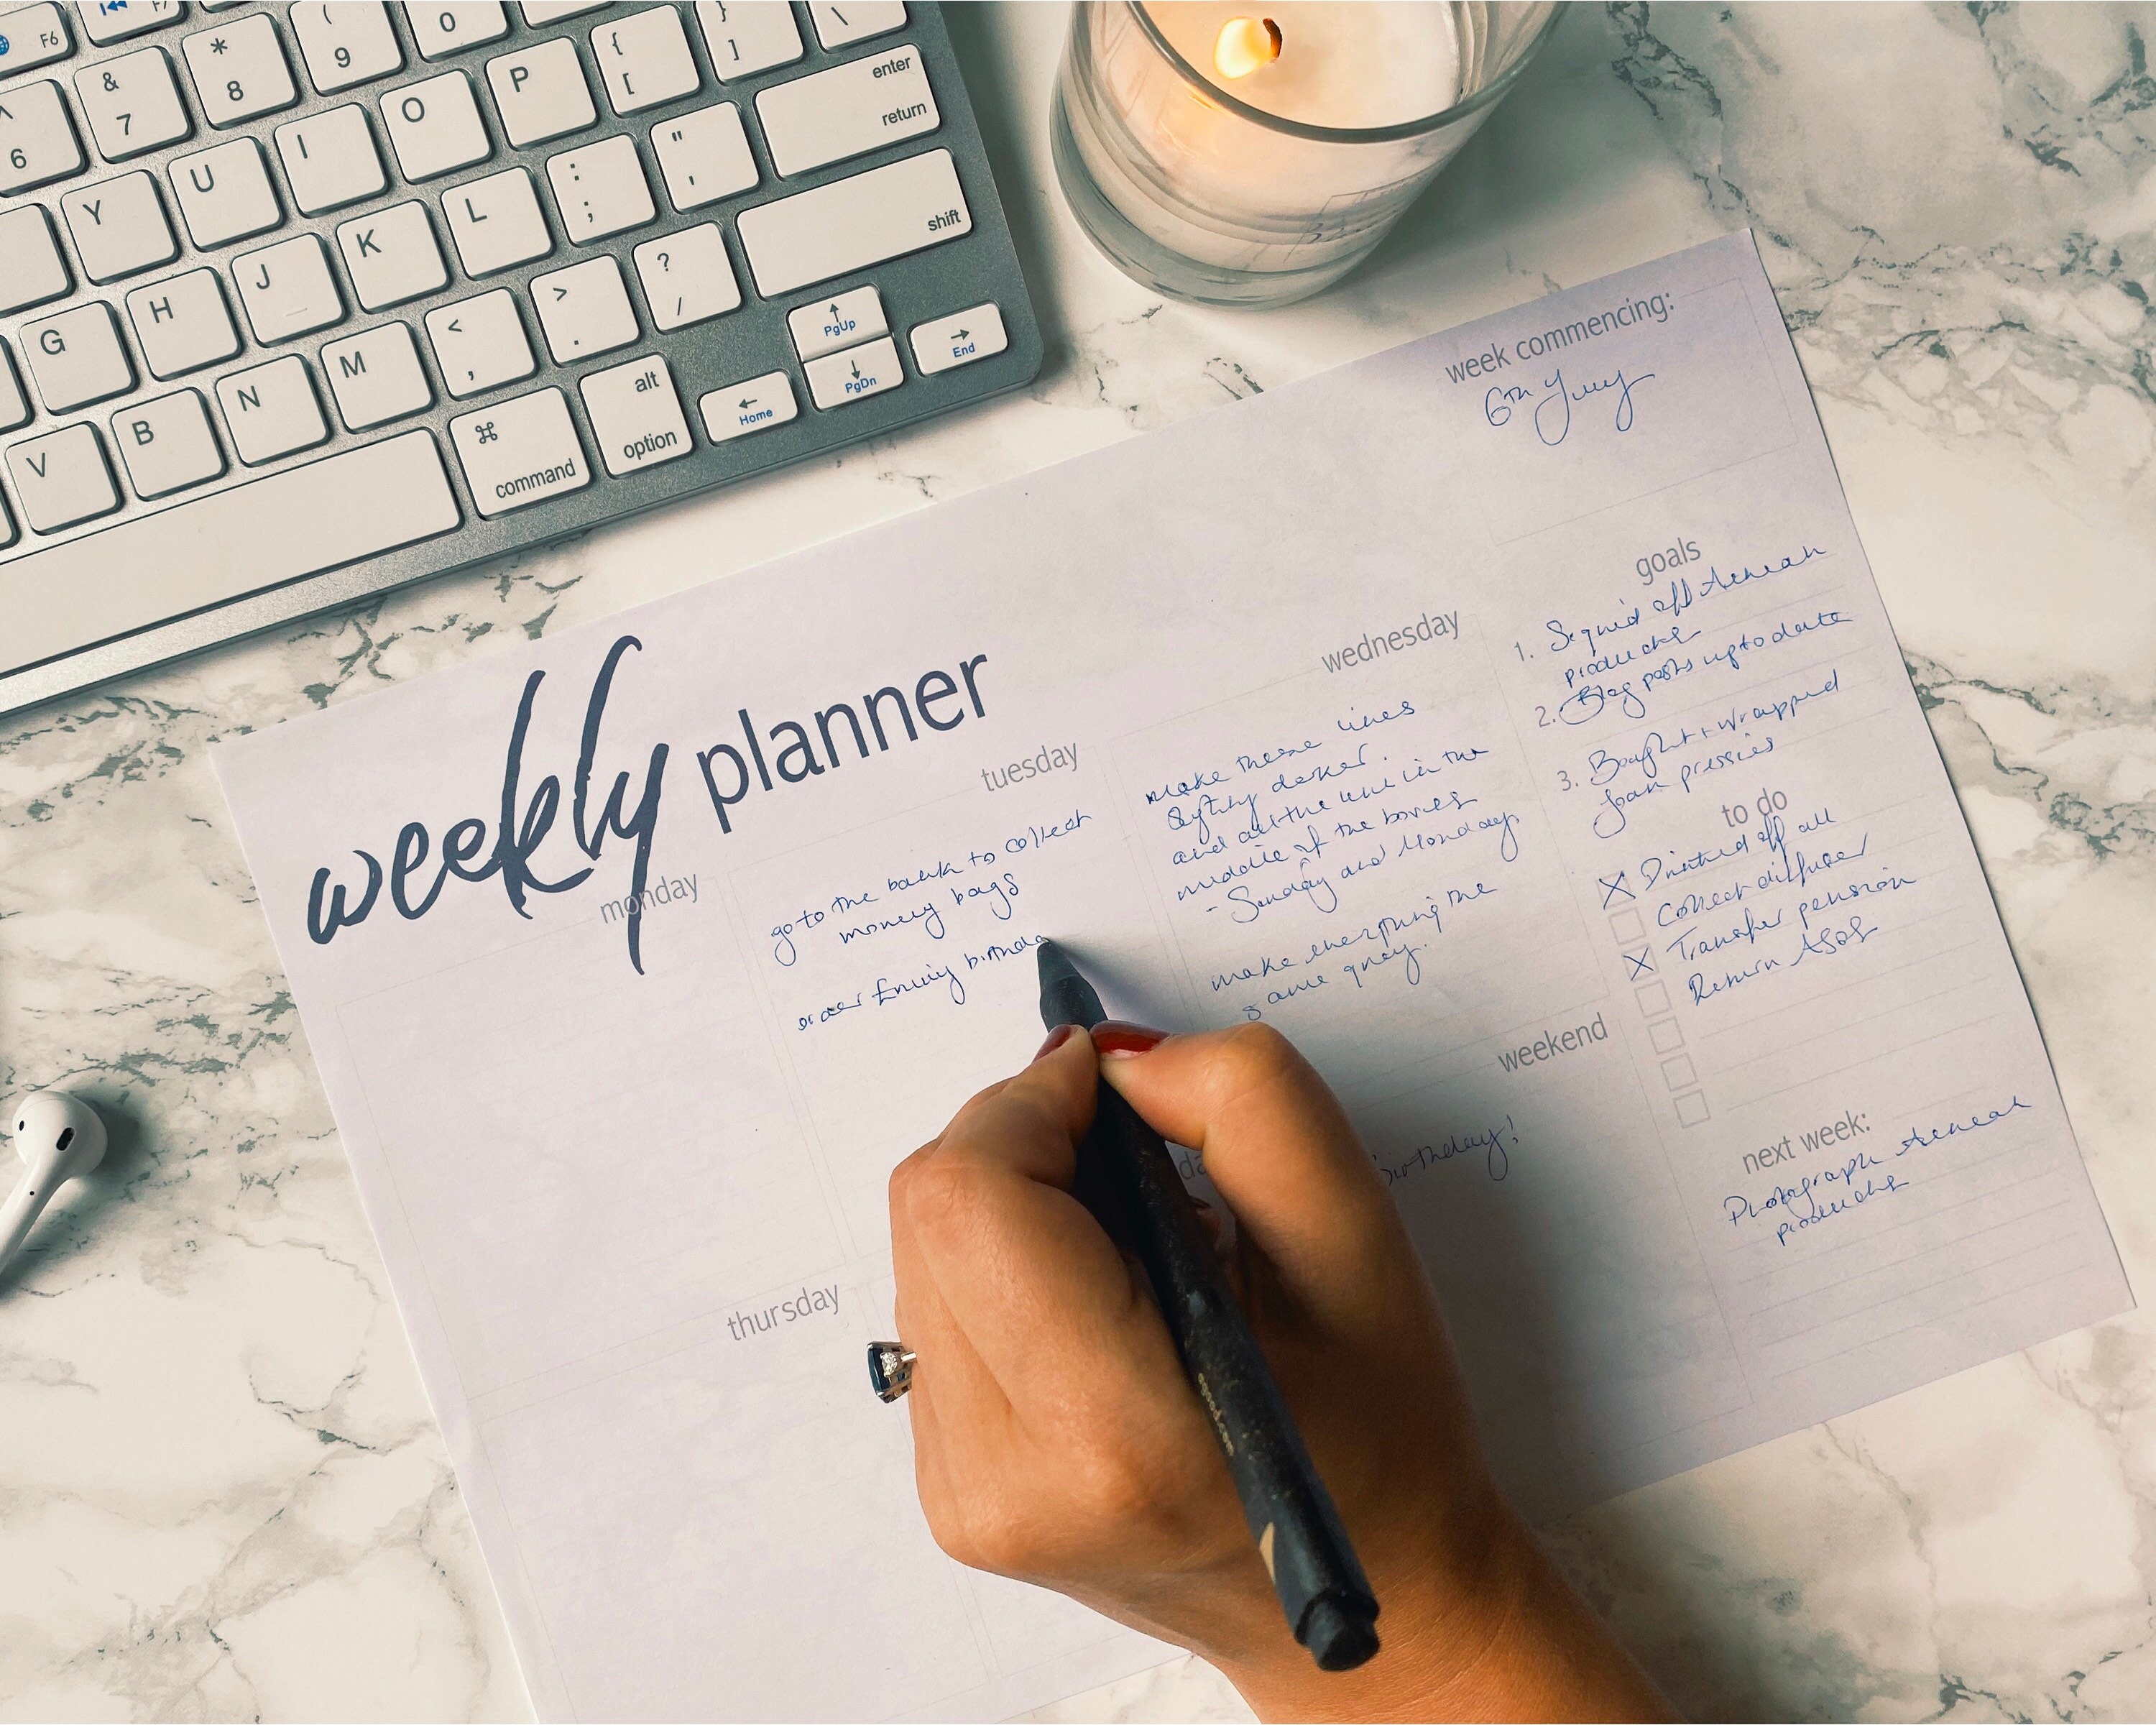 F6 F7
^ 6
& 7
* 8
( 9
0
Y U I O P { [ } ] \
enter
return
G H J K L : ; " '
shift
V B N M < , > . ? /
command
alt
option
PgUp
PgDn
Home
End
week commencing:
6th July
weekly planner
monday
tuesday
go to the bank to collect
money bags
order birthda
wednesday
make these lines
slightly darker.
and add the line in the
middle of the boxes
- Sunday and Monday
make everything the
same grey.
thursday
weekend
birthday!
goals
1. Signed off
products
2. Blog posts up to date
3. Bought + wrapped
pressies
to do
off all
Collect diffuser
Transfer pension
Return ASOS
next week:
Photograph
products